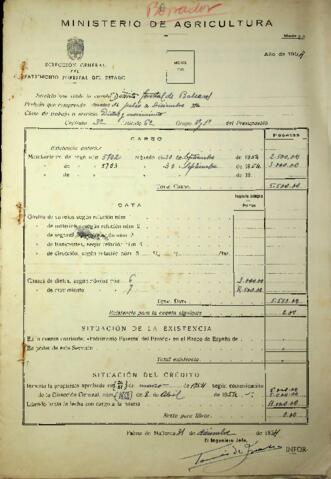 Borrador
MINISTERIO DE AGRICULTURA
Año de 1954
DIRECCIÓN GENERAL
DEL
PATRIMONIO FORESTAL DEL ESTADO
Servicio que rinde la cuenta Distrito Forestal de Baleares
Período que comprende meses de julio a Diciembre
Clase de trabajo o servicio Dietas y movimiento
Capítulo Artículo Grupo del Presupuesto
CARGO
PESETAS
Existencia anterior
Mandamiento de pago núm. 5702 expedido en 30 Septiembre de 1954 2.500.00
de » 5703 » 30 Septiembre de 1954 3.000.00
de » » de 19
Total Cargo 5.500.00
DATA
Gastos de jornales según relación núm. 1
de materiales según relación núm. 2
de según relación núm. 3
de transportes, según relación núm. 4
de dirección, según relación núm. 5
Gastos de dietas, según nómina núm. 6 3.000.00
de movimiento 7 2.500.00
Total Data 5.500.00
Existencia para la cuenta siguiente 0.00
SITUACIÓN DE LA EXISTENCIA
En la cuenta corriente «Patrimonio Forestal del Estado» en el Banco de España de
En poder de esta Sección
Total existencia
SITUACIÓN DEL CRÉDITO
Importa la propuesta aprobada en de marzo de 1954 según comunicación
de la Dirección General, núm. de 2 de Abril de 1954
Librado hasta la fecha con cargo a la misma
Resto para librar 0.00
Palma de Mallorca 31 de diciembre de 1954
El Ingeniero Jefe,
INFOR